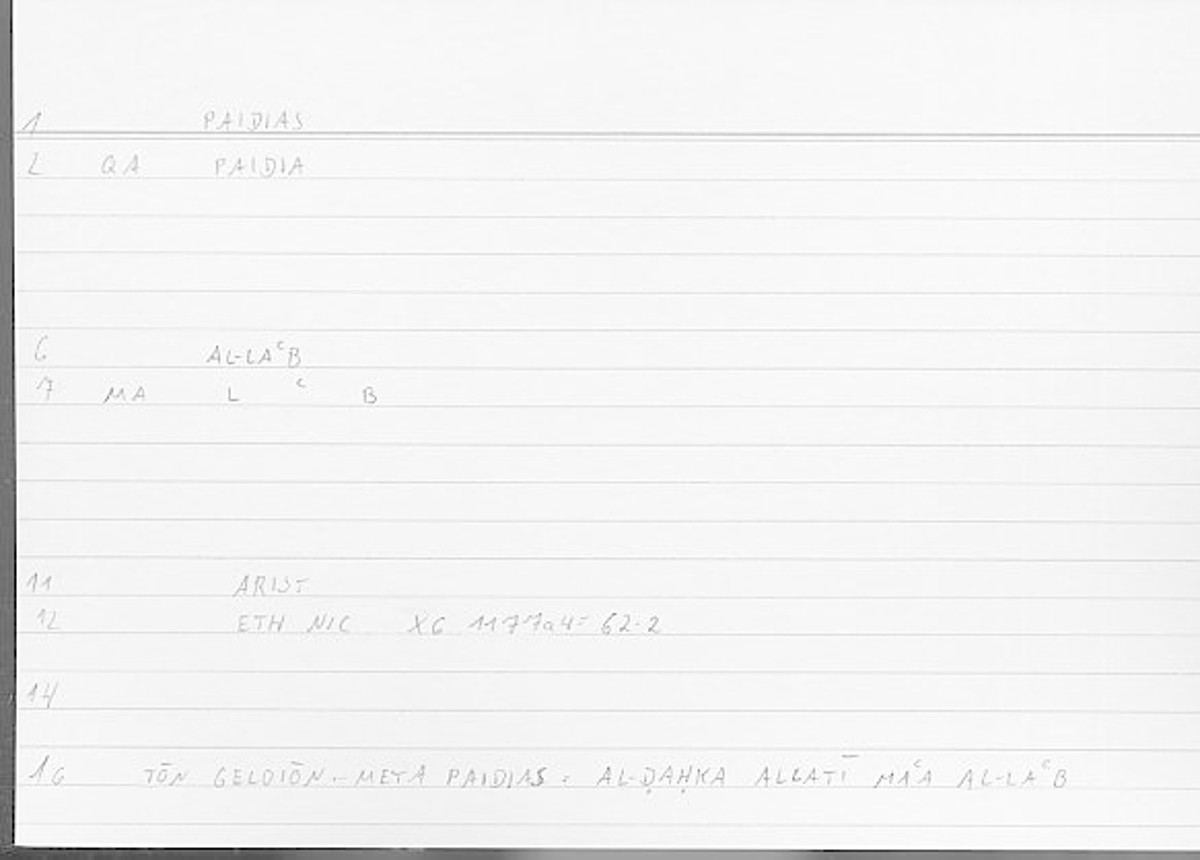 1 PAIDIAS
2 QA PAIDIA
6 AL-LAᶜB
7 MA L ᶜ B
11 ARIST
12 ETH NIC X6 1177a4= 62-2
14
16 TŌN GELOIŌN .. META PAIDIAS = AL-ḌAḤKA ALLATĪ MAᶜA AL-LAᶜB